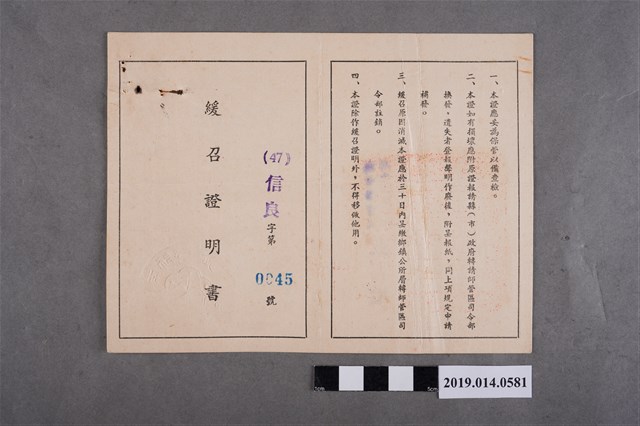 一、本證應妥為保管以備查核。
二、本證如有損壞應附原證報請縣（市）政府轉請師管區司令部
換發，遺失者登報聲明作廢後，附呈報紙，同上項規定申請
補發。
三、緩召原因消滅本證應於三十日內呈繳鄉鎮公所層轉師管區司
令部註銷。
四、本證除作緩召證明外，不得移做他用。
(47)信良字第0045號
緩召證明書
2019.014.0581